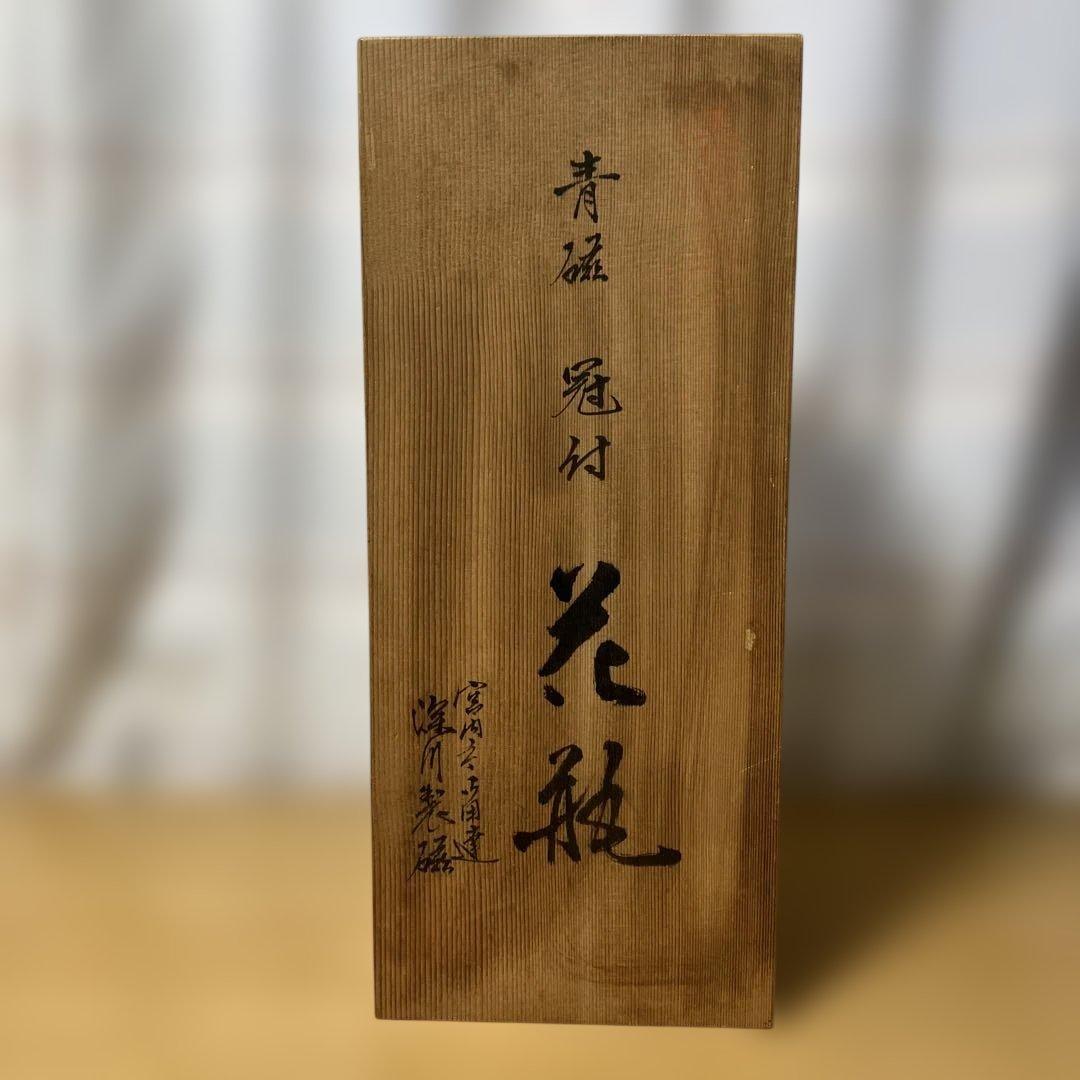 青磁 冠付 花瓶
宮内庁御用達
深川製磁